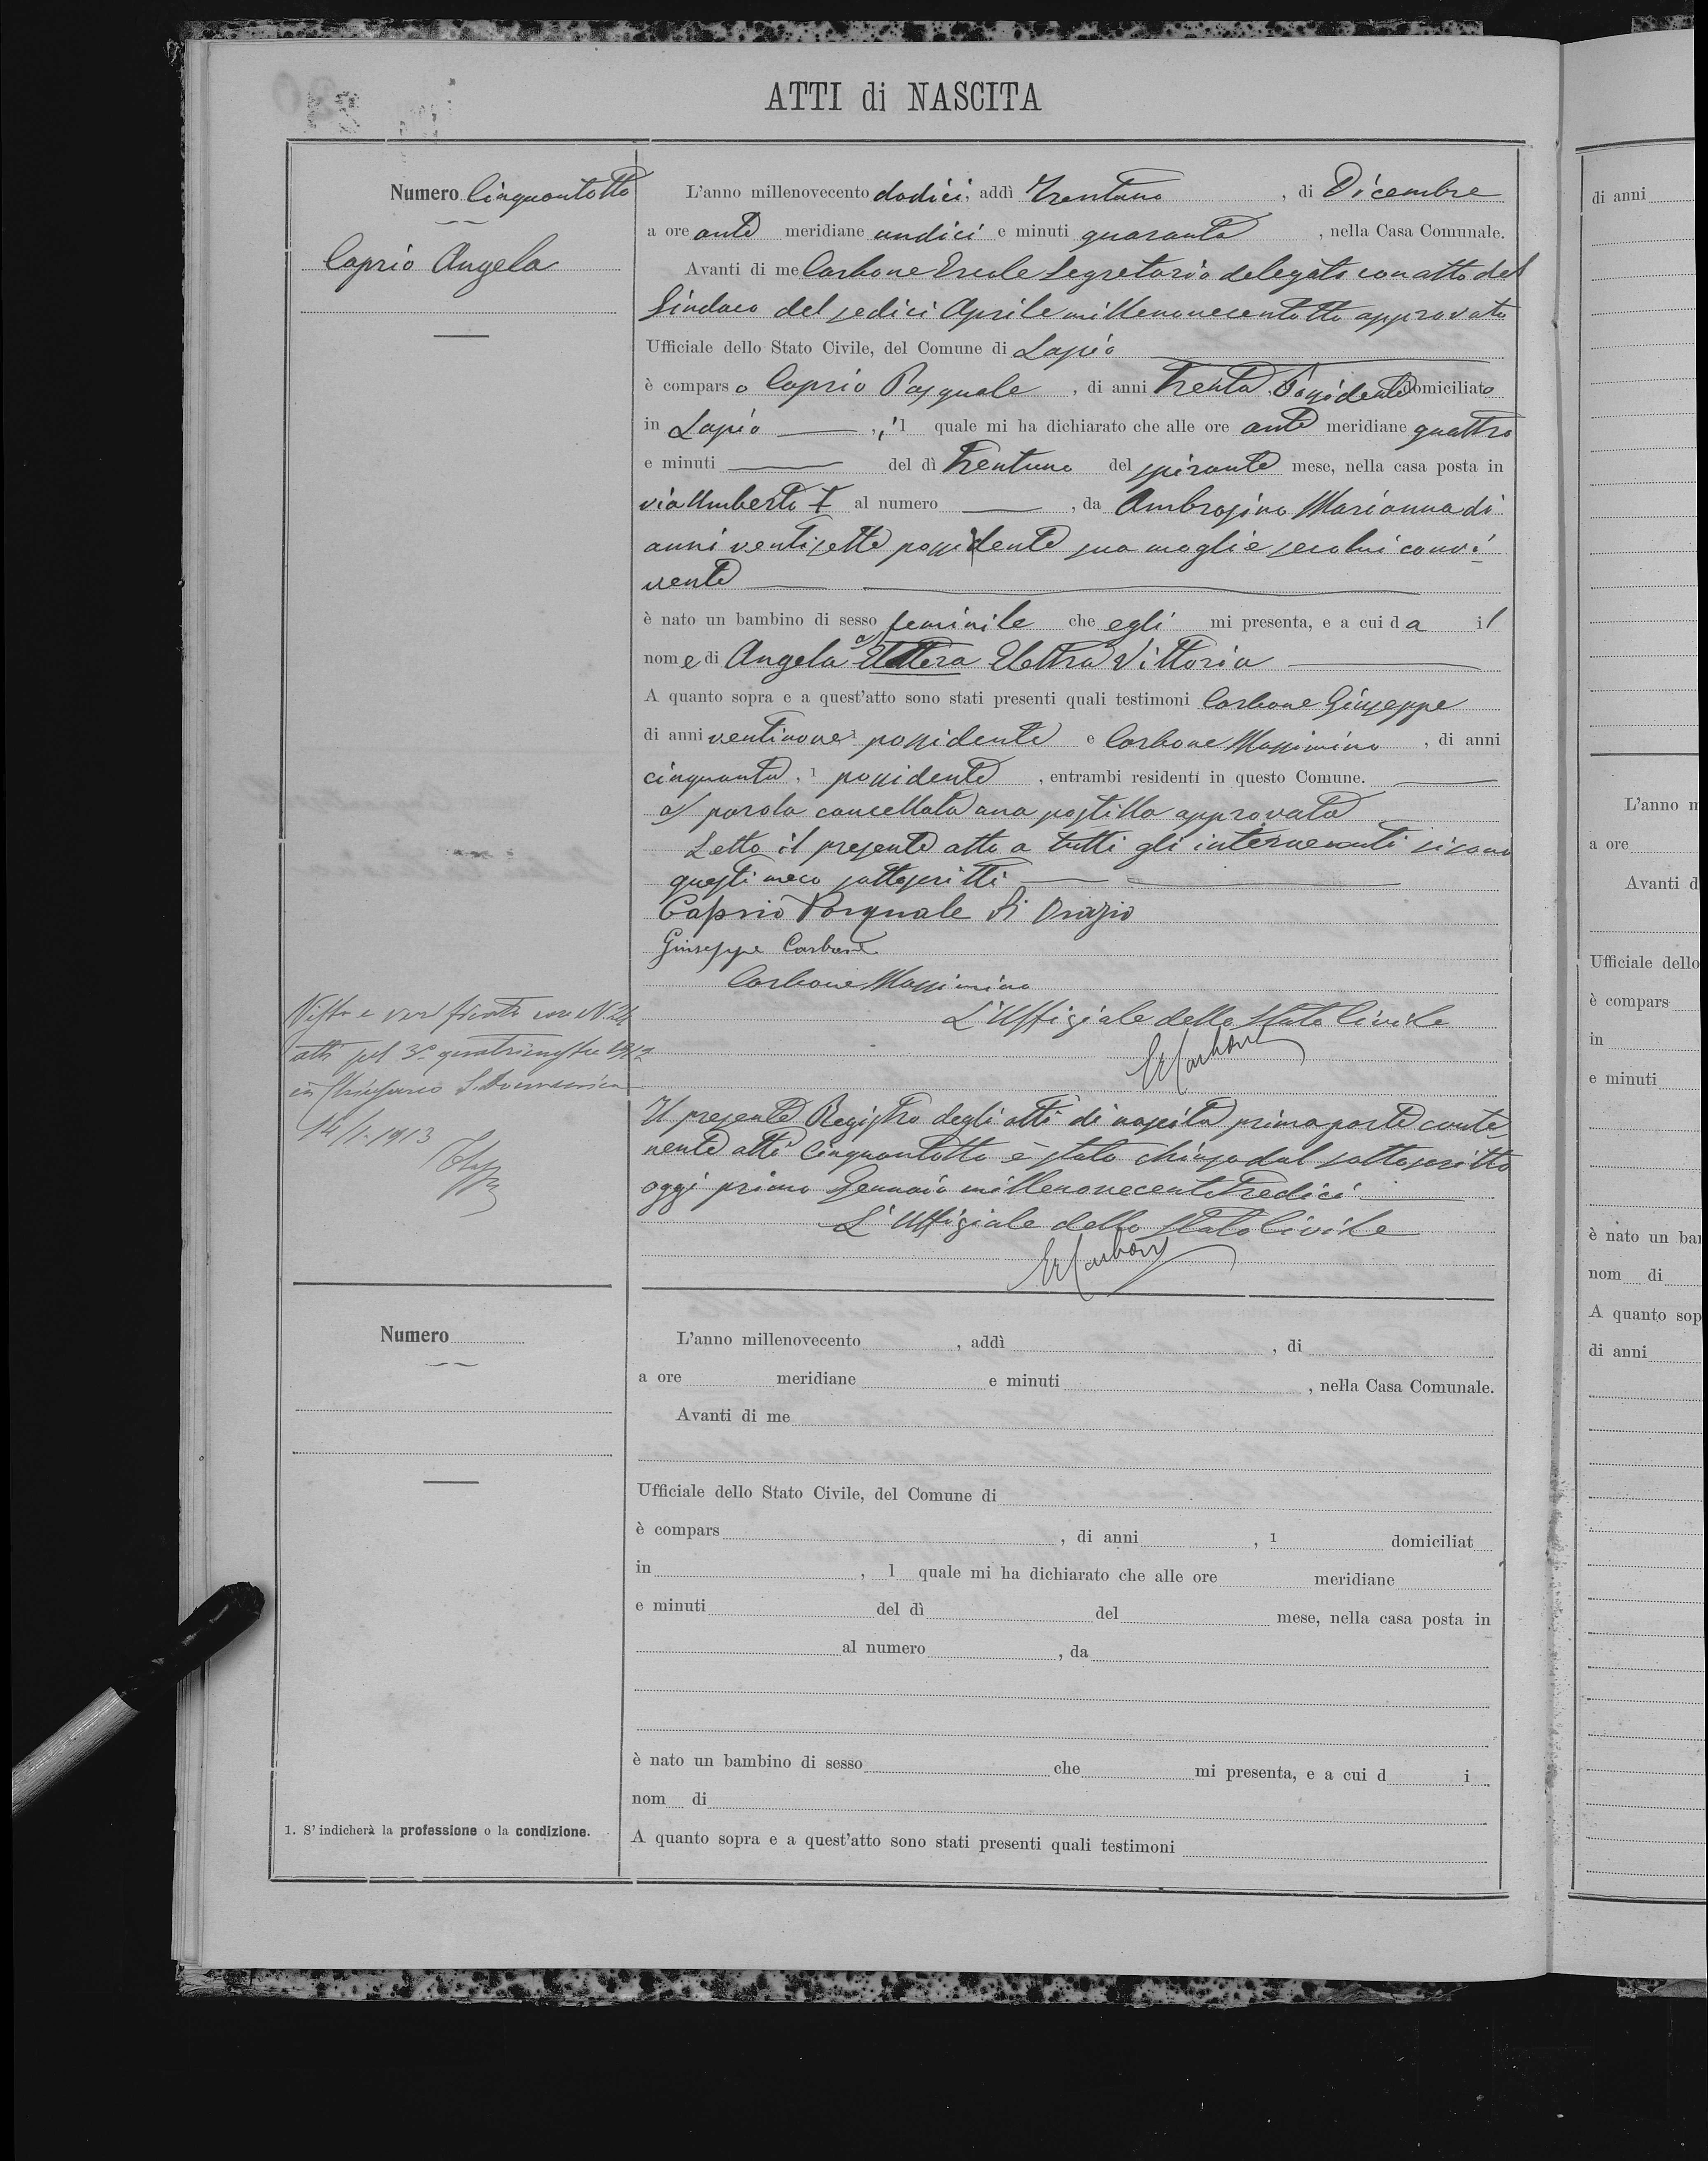 ATTI di NASCITA
Numero Cinquantotto
Caprio Angela
L'anno millenovecento dodici, addì trentuno, di Dicembre
a ore ante meridiane undici e minuti quaranta, nella Casa Comunale.
Avanti di me Carbone Ercole Segretario delegato con atto del
Sindaco del sedici Aprile millenovecentotto approvato
Ufficiale dello Stato Civile, del Comune di Lapio
è comparso Caprio Pasquale, di anni trenta, Possidente domiciliato
in Lapio, il quale mi ha dichiarato che alle ore ante meridiane quattro
e minuti del dì trentuno del spirante mese, nella casa posta in
via Umberto I al numero, da Ambrosino Marianna di
anni ventisette possidente sua moglie seco lui convi
vente
è nato un bambino di sesso feminile che egli mi presenta, e a cui da il
nome di Angela a) Elettra Vittoria
A quanto sopra e a quest'atto sono stati presenti quali testimoni Carbone Giuseppe
di anni ventinove, 1 possidente e Carbone Massimino, di anni
cinquanta, 1 possidente, entrambi residenti in questo Comune.
a) parola cancellata una postilla approvata
Letto il presente atto a tutti gli intervenuti si sono
questi meco sottoscritti
Caprio Pasquale di Orazio
Giuseppe Carbone
Carbone Massimino
L'Uffiziale dello Stato Civile
Er Carbone
Visto e verificato con N. 24
atti pel 3° quatrimestre 1912
in Chiusano S. Domenico
14/1.1913
Il presente Registro degli atti di nascita prima parte conte
nente atti cinquantotto è stato chiuso dal sottoscritto
oggi primo Gennaio millenovecentotredici
L'Uffiziale dello Stato Civile
Er Carbone
Numero
L'anno millenovecento, addì, di
a ore meridiane e minuti, nella Casa Comunale.
Avanti di me
Ufficiale dello Stato Civile, del Comune di
è compars, di anni, 1 domiciliat
in, l quale mi ha dichiarato che alle ore meridiane
e minuti del dì del mese, nella casa posta in
al numero, da
è nato un bambino di sesso che mi presenta, e a cui d i
nom di
A quanto sopra e a quest'atto sono stati presenti quali testimoni
1. S'indicherà la professione o la condizione.
di anni
L'anno
a ore
Avanti d
Ufficiale dello
è compars
in
e minuti
è nato un
nom di
A quanto sop
di anni